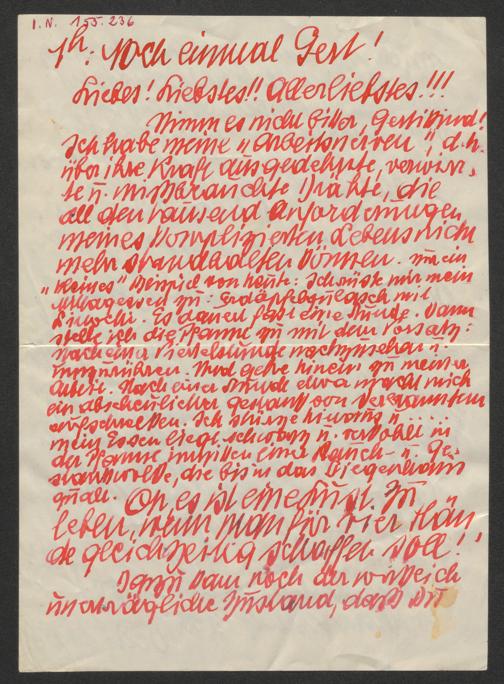 I.N. 155.236
1h: Noch einmal Gert!
Liebes! Liebstes!! Allerliebstes!!!
Nimm es nicht bitter, Gertikind!
Ich habe meine „Arbeitsnerven", d.h.
über ihre Kraft ausgedehnte, verwirr-
te u. missbrauchte Drähte, die
all den tausend Anforderungen
meines komplizierten Lebens nicht
mehr standhalten können. Nur ein
„kleines" Beispiel von heute: Ich richte mir mein
Mittagessen zu: Erdäpfelgulasch mit
Es dauert fast eine Stunde. Dann
stelle ich die Pfanne zu mit dem Vorsatz:
nach einer Viertelstunde nachzusehen u.
umzurühren. Und gehe hinein zu meiner
Arbeit. Nach einer Stunde etwa macht mich
ein abscheulicher Gestank von Verbranntem
aufschrecken. Ich stürze hinaus! ....
mein Essen liegt schwarz u. verkohlt in
der Pfanne inmitten einer Rauch- u. Ge-
stankwolke, die bis in das Stiegenhaus
quillt. Oh, es ist eine Kunst, zu
leben, wenn man für vier Hän
de gleichzeitig schaffen soll!
Dazu dann noch der wirklich
unerträgliche Zustand, dass Du